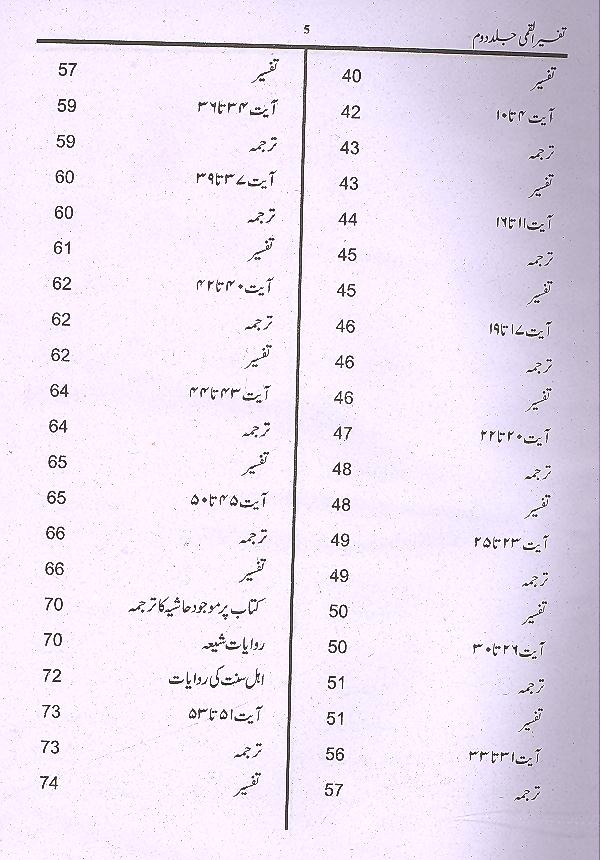 تفسیر القمی جلد دوم
5
تفسیر 40
آیت ۴ تا ۱۰ 42
ترجمہ 43
تفسیر 43
آیت ۱۱ تا ۱۶ 44
ترجمہ 45
تفسیر 45
آیت ۱۷ تا ۱۹ 46
ترجمہ 46
تفسیر 46
آیت ۲۰ تا ۲۲ 47
ترجمہ 48
تفسیر 48
آیت ۲۳ تا ۲۵ 49
ترجمہ 49
تفسیر 50
آیت ۲۶ تا ۳۰ 50
ترجمہ 51
تفسیر 51
آیت ۳۱ تا ۳۳ 56
ترجمہ 57
تفسیر 57
آیت ۳۴ تا ۳۶ 59
ترجمہ 59
آیت ۳۷ تا ۳۹ 60
ترجمہ 60
تفسیر 61
آیت ۴۰ تا ۴۲ 62
ترجمہ 62
تفسیر 62
آیت ۴۳ تا ۴۴ 64
ترجمہ 64
تفسیر 65
آیت ۴۵ تا ۵۰ 65
ترجمہ 66
تفسیر 66
کتاب پر موجود حاشیہ کا ترجمہ 70
روایات شیعہ 70
اہل سنت کی روایات 72
آیت ۵۱ تا ۵۳ 73
ترجمہ 73
تفسیر 74